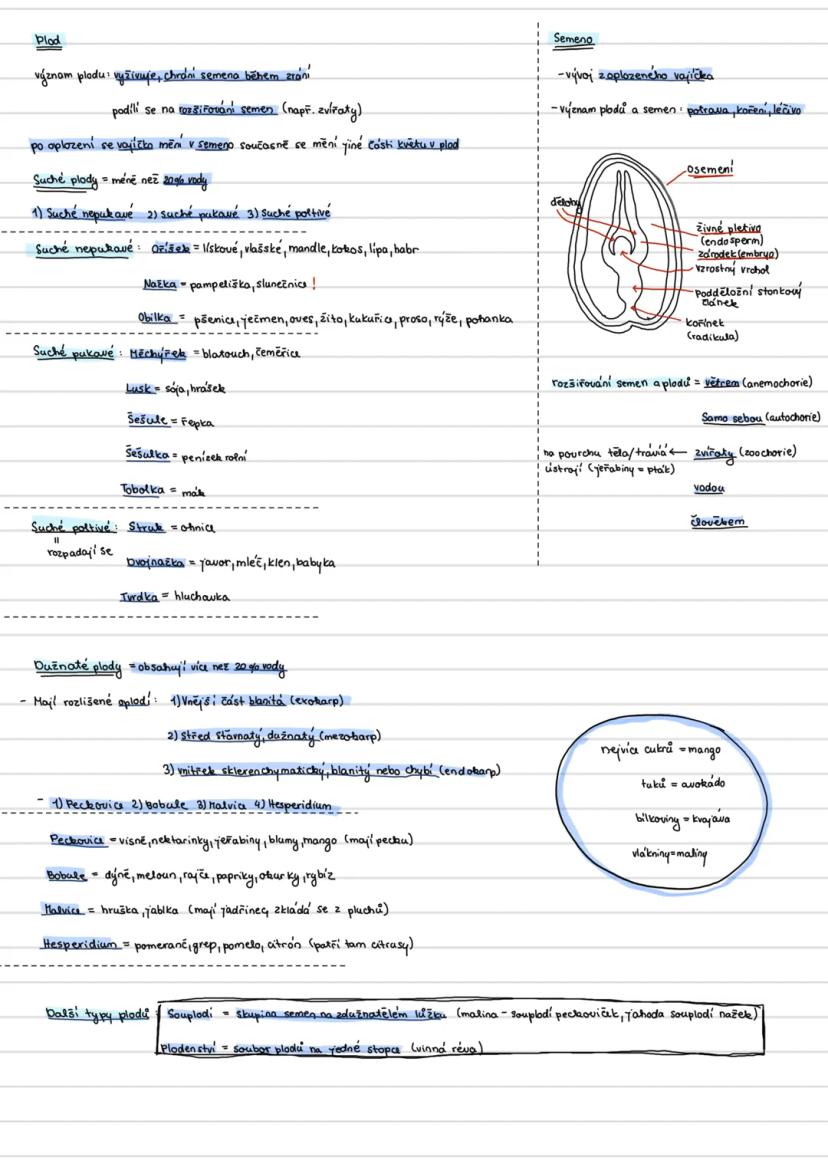 Plod
význam plodu: vyživuje, chrání semena během zrání
podílí se na rozšiřování semen (např. zvířaty)
po oplození se vajíčko mění v semeno současně se mění jiné části květu v plod
Suché plody = méně než 20% vody
1) Suché nepukavé 2) suché pukavé 3) Suché poltivé
Suché nepukavé: Oříšek = lískové, vlašské, mandle, kokos, lípa, habr
Nažka = pampeliška, slunečnice !
Obilka = pšenice, ječmen, oves, žito, kukuřice, proso, rýže, pohanka
Suché pukavé: Měchýřek = blatouch, čeměřice
Lusk = sója, hrášek
Šešule = řepka
Šešulka = penízek rolní
Tobolka = mák
Suché poltivé: Struk = ohnice
=
rozpadají se
Dvojnažka = javor, mléč, klen, babyka
Tvrdka = hluchavka
Semeno
-vývoj z oplozeného vajíčka
-význam plodů a semen: potrava, koření, léčivo
osemení
dělohy
živné pletivo
(endosperm)
zárodek (embryo)
vzrostný vrchol
podděložní stonkový
článek
kořínek
(radikula)
rozšiřování semen a plodů = větrem (anemochorie)
Samo sebou (autochorie)
na povrchu těla/trávía ← zvířaty (zoochorie)
ústrojí (jeřabiny = pták)
vodou
člověkem
Dužnaté plody = obsahují více než 20% vody
- Mají rozlišené oplodí: 1) Vnější část blanitá (exokarp)
2) střed šťavnatý, dužnatý (mezokarp)
3) vnitřek sklerenchymatický, blanitý nebo chybí (endokarp)
- 1) Peckovice 2) Bobule 3) Malvice 4) Hesperidium
Peckovice = višně, nektarinky, jeřabiny, blumy, mango (mají pecku)
Bobule = dýně, meloun, rajče, papriky, okurky, rybíz
Malvice = hruška, jablka (mají jádřinec, zkládá se z pluchů)
Hesperidium = pomeranč, grep, pomelo, citrón (patří tam citrusy)
nejvíce cukrů = mango
tuků = avokádo
bílkoviny = kvajáva
vlákniny = maliny
Další typy plodů: Souplodí = skupina semen na zdužnatělém lůžku (malina - souplodí peckoviček, jahoda souplodí nažek)
Plodenství = soubor plodů na jedné stopce (vinná réva)